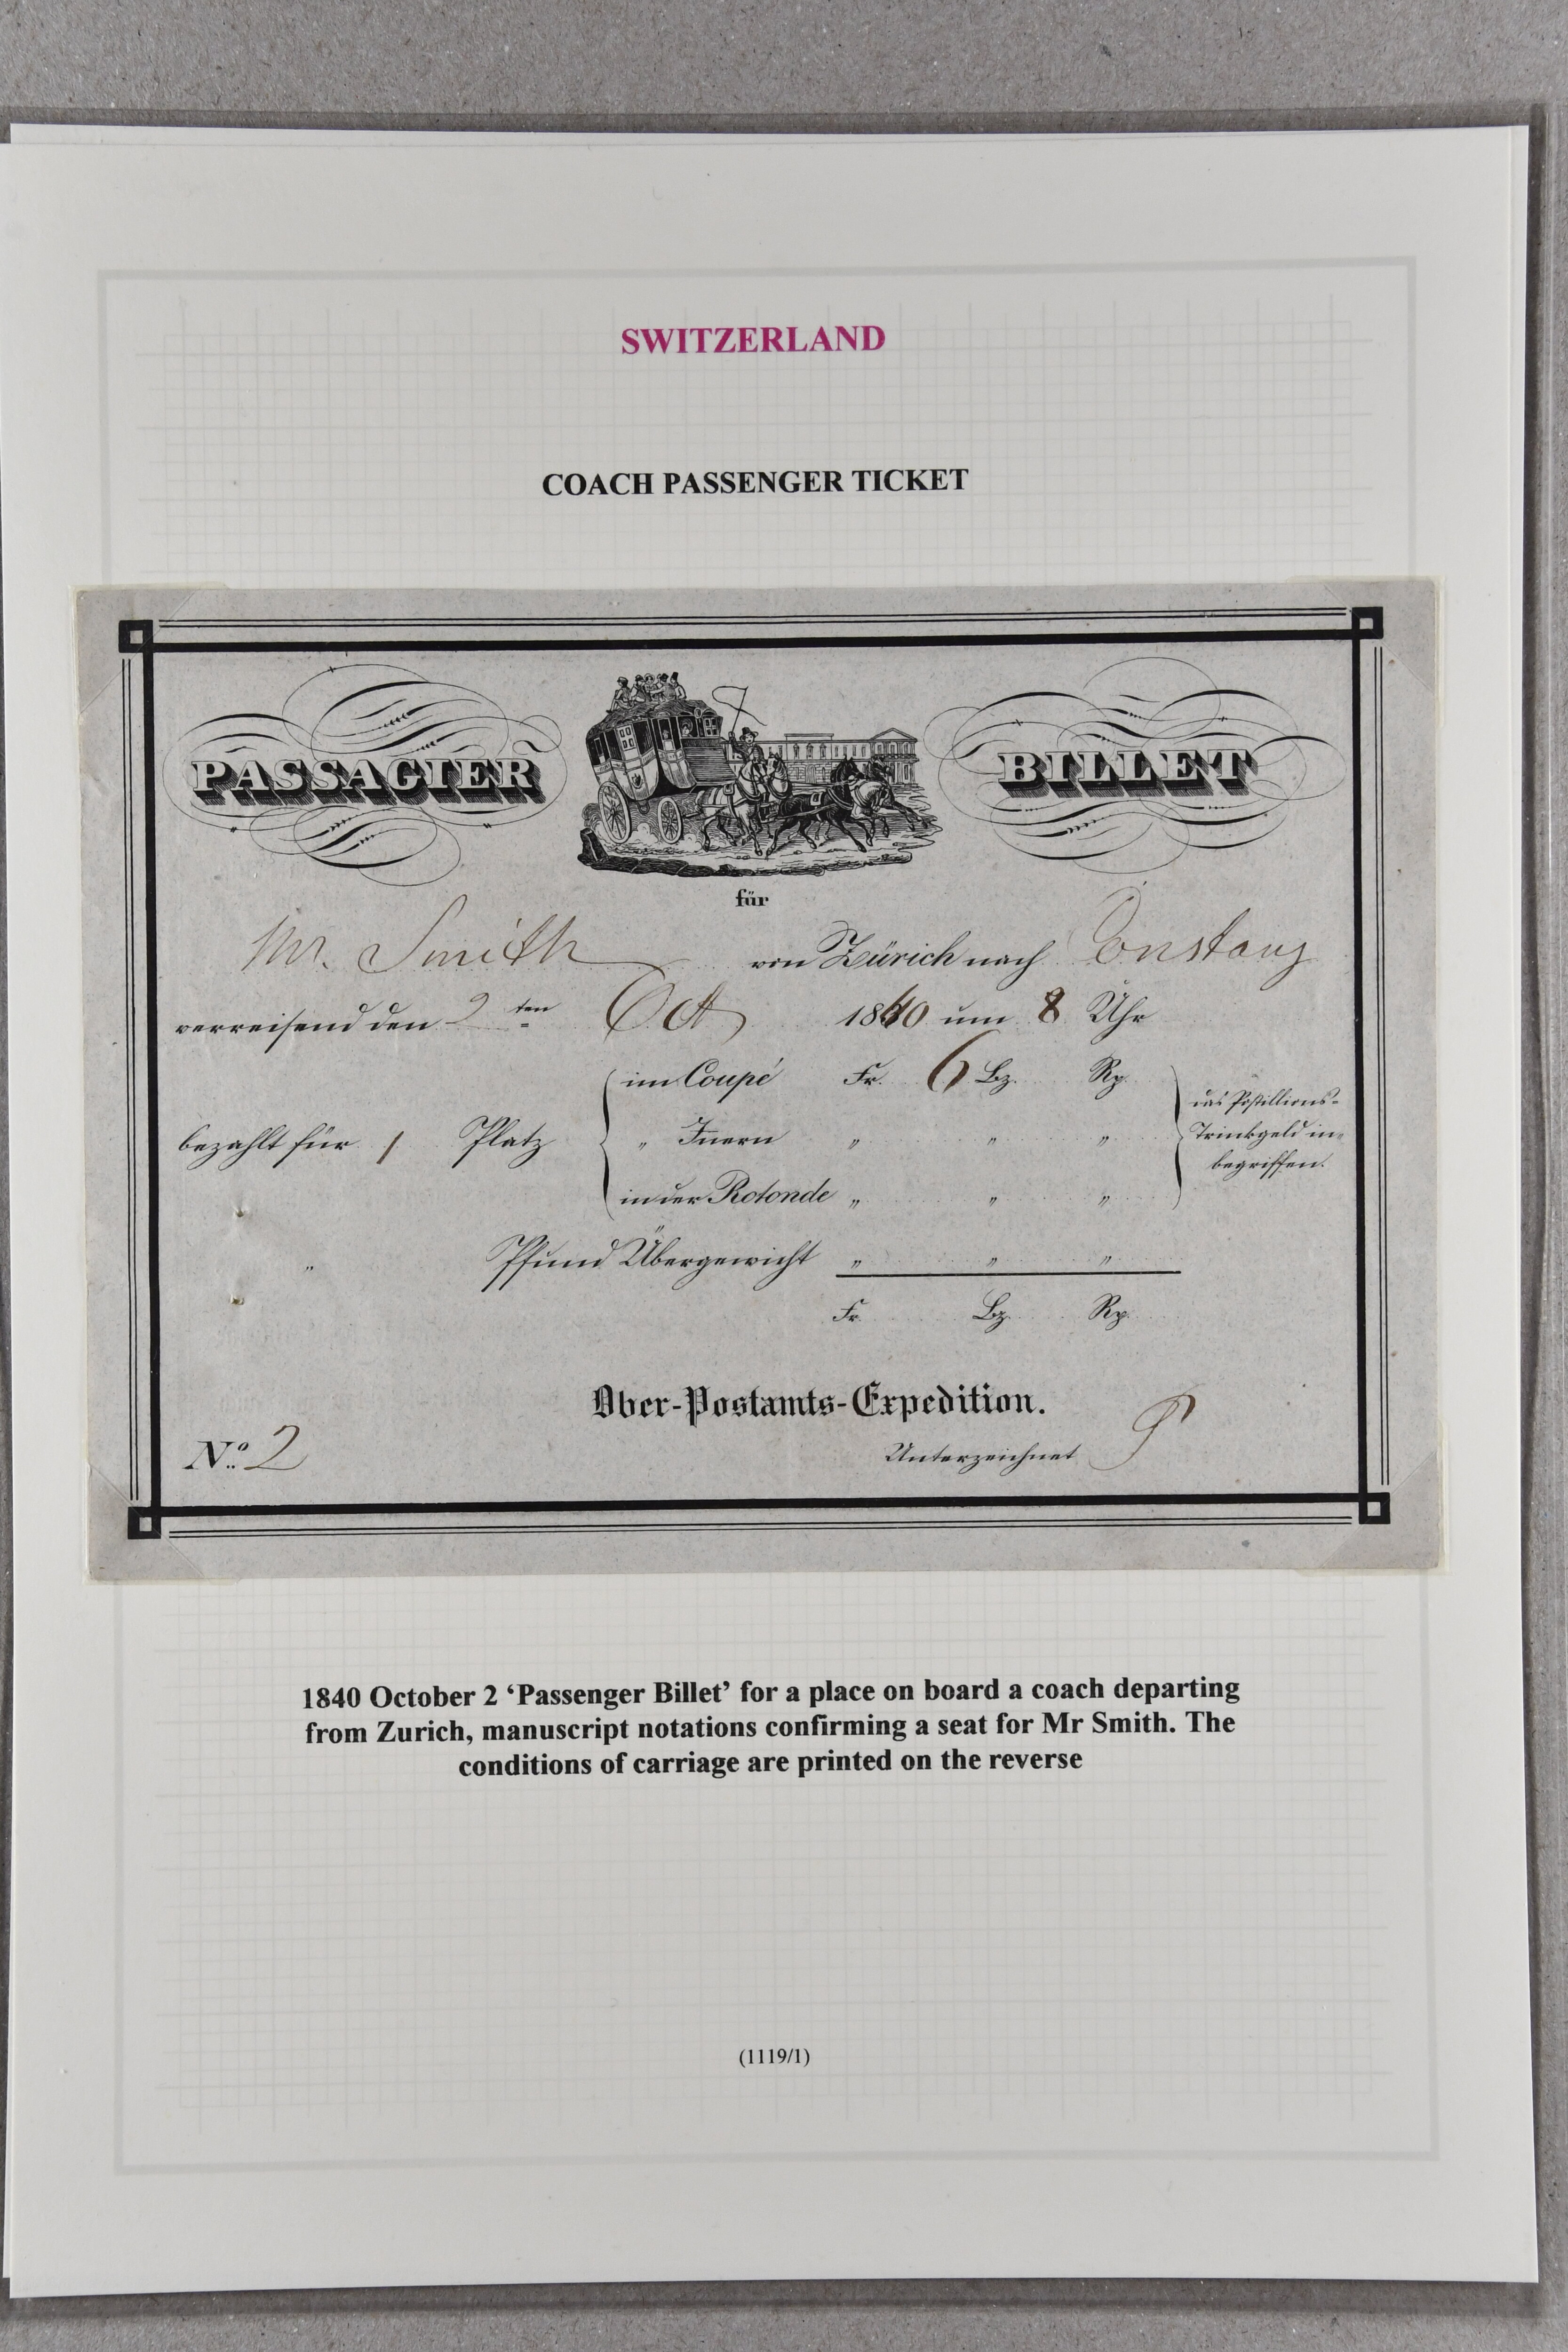 SWITZERLAND
COACH PASSENGER TICKET
PASSAGIER BILLET
für
Mr. Smith von Zürich nach Constanz
verreisend den 2 ten Oct 1840 um 8 Uhr
im Coupé Fr. 6 Bz. Rp.
bezahlt für 1 Platz " Innern " " "
in der Rotonde " " "
das Postillions-
Trinkgeld in-
begriffen.
" Pfund Übergewicht " " "
Fr. Bz. Rp.
Ober-Postamts-Expedition.
No. 2 Unterzeichnet
1840 October 2 ‘Passenger Billet’ for a place on board a coach departing
from Zurich, manuscript notations confirming a seat for Mr Smith. The
conditions of carriage are printed on the reverse
(1119/1)